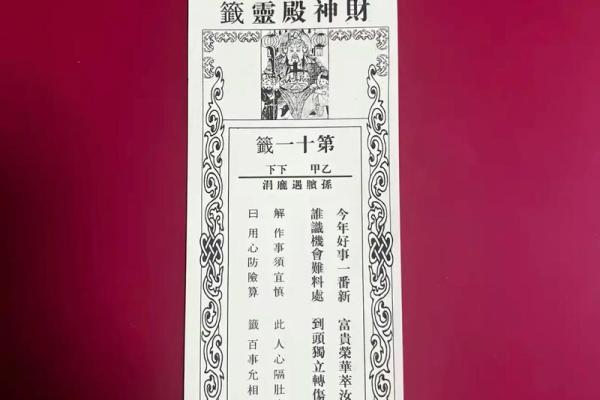 財神殿靈籤
第十一籤
乙甲 下下
孫臏遇龐涓
今年好事一番新 富貴榮華萃汝
誰識機會難料處 到頭獨立轉傷
解 作事須宜慎 此 人心隔肚
曰 用心防險算 籤 百事允相